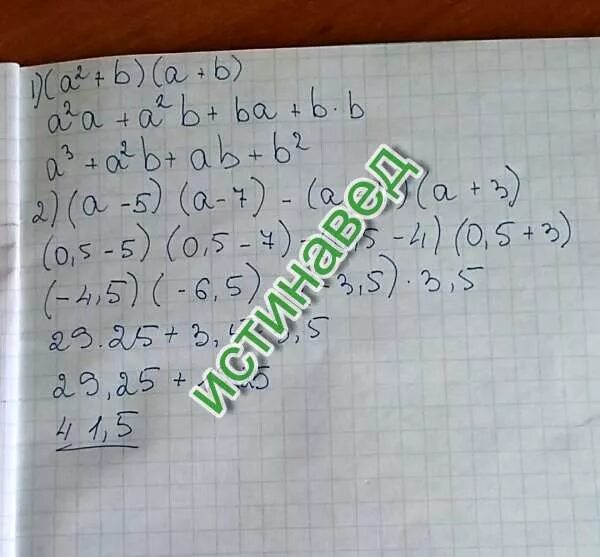 1) (a² + b) (a + b)
a²a + a²b + ba + b · b
a³ + a²b + ab + b²
2) (a - 5) (a - 7) - (a ) (a + 3)
(0,5 - 5) (0,5 - 7) - 5 - 4) (0,5 + 3)
(-4,5) (-6,5) -3,5) · 3,5
29.25 + 3, 3,5
29,25 + 25
41,5
истинавед